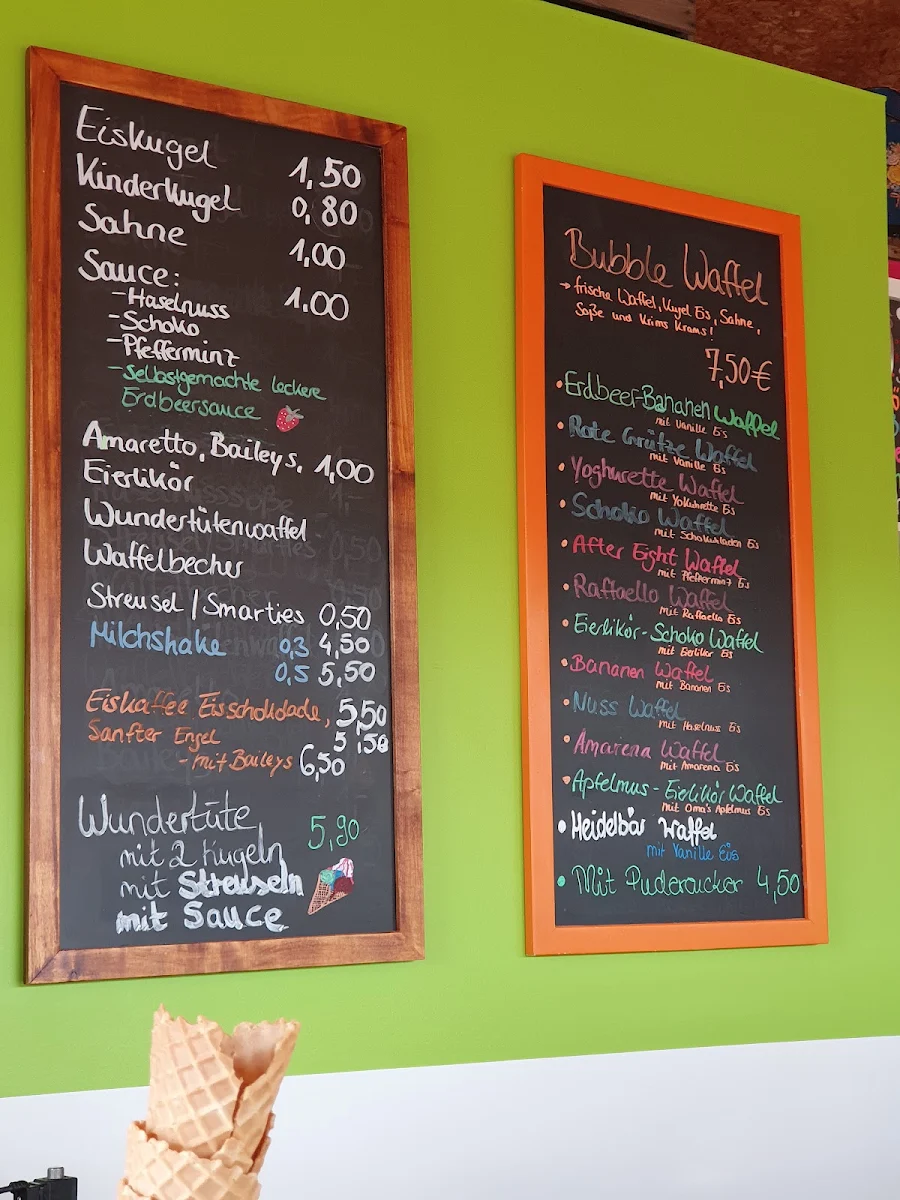 Eiskugel 1,50
Kinderkugel 0,80
Sahne 1,00
Sauce: 1.00
-Haselnuss
-Schoko
-Pfefferminz
-Selbstgemachte leckere
Erdbeersauce
Amaretto, Baileys, 1,00
Eierlikör
Wundertütenwaffel
Waffelbecher
Streusel / Smarties 0,50
Milchshake 0,3 4,50
0,5 5,50
Eiskaffee Eisschokolade, 5,50
Sanfter Engel 5,50
- mit Baileys 6,50
Wundertüte 5,90
mit 2 Kugeln
mit Streuseln
mit Sauce
Bubble Waffel
→ frische Waffel, Kugel Eis, Sahne,
Soße und Krims Krams!
7,50€
• Erdbeer-Bananen Waffel
mit Vanille Eis
• Rote Grütze Waffel
mit Vanille Eis
• Yoghurette Waffel
mit Eis
• Schoko Waffel
mit Schokoladen Eis
• After Eight Waffel
mit Pfefferminz Eis
• Raffaello Waffel
mit Raffaello Eis
• Eierlikör-Schoko Waffel
mit Eierlikör Eis
• Bananen Waffel
mit Bananen Eis
• Nuss Waffel
mit Haselnuss Eis
• Amarena Waffel
mit Amarena Eis
• Apfelmus-Eierlikör Waffel
mit Oma's Apfelmus Eis
• Heidelbär Waffel
mit Vanille Eis
• Mit Puderzucker 4,50